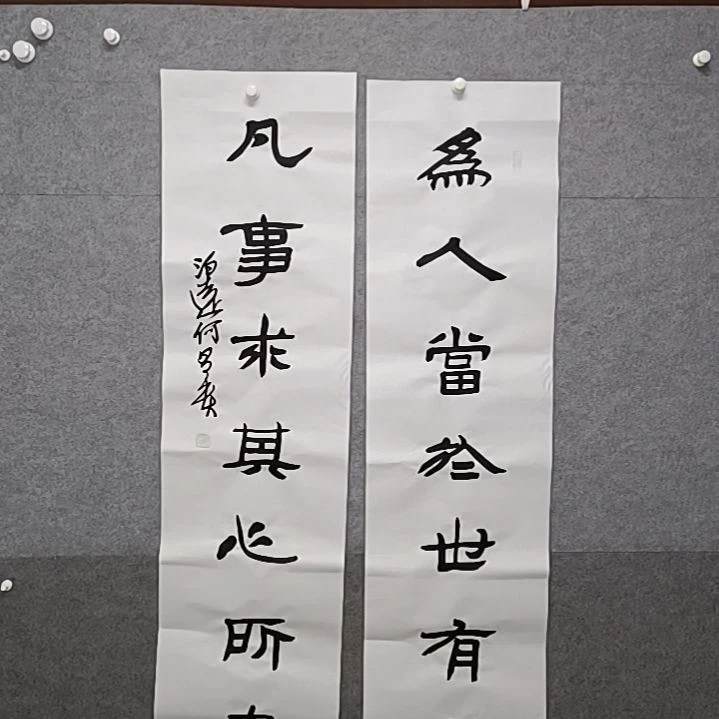 為人當於世有
凡事求其心所
何